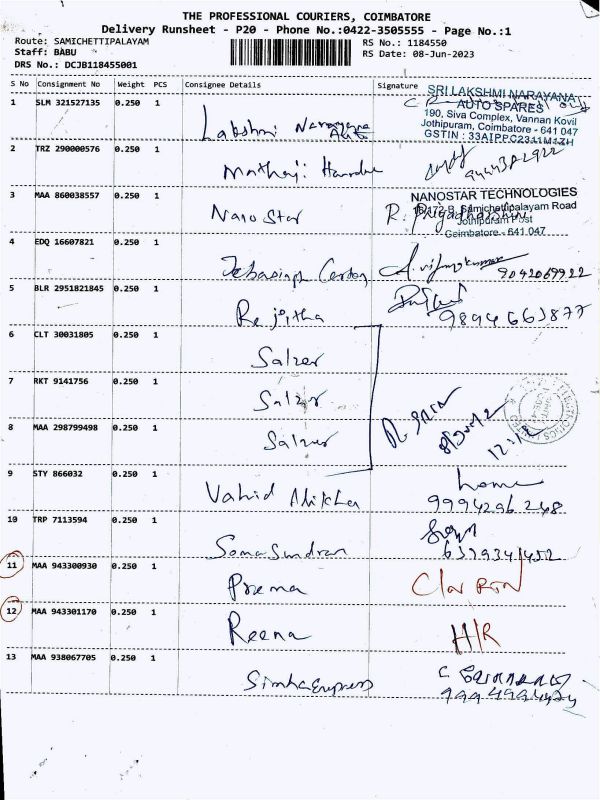 THE PROFESSIONAL COURIERS, COIMBATORE
Delivery Runsheet - P20 - Phone No.:0422-3505555 - Page No.:1
Route: SAMICHETTIPALAYAM
RS No.: 1184550
Staff: BABU
RS Date: 08-Jun-2023
DRS No.: DCJB118455001
S No Consignment No Weight PCS Consignee Details Signature
SRI LAKSHMI NARAYANA
AUTO SPARES
190, Siva Complex, Vannan Kovil
Jothipuram, Coimbatore - 641 047
GSTIN : 33AIPPC2311M1ZH
1 SLM 321527135 0.250 1 Lakshmi Narayana
Auto
2 TRZ 290000576 0.250 1
NANOSTAR TECHNOLOGIES
Samichettipalayam Road
Jothipuram Post
Coimbatore - 641 047
3 MAA 860038557 0.250 1 Nano Star R. Priyadharshini
4 EDQ 16607821 0.250 1 9042069922
5 BLR 2951821845 0.250 1 Rejitha 9894663877
6 CLT 30031805 0.250 1 Salzer
7 RKT 9141756 0.250 1 Salzer
8 MAA 298799498 0.250 1 Salzer
9 STY 866032 0.250 1 Vahid home
9994296248
10 TRP 7113594 0.250 1 Soma Sundran
11 MAA 943300930 0.250 1 Prema
12 MAA 943301170 0.250 1 Reena H/R
13 MAA 938067705 0.250 1 Simha Express